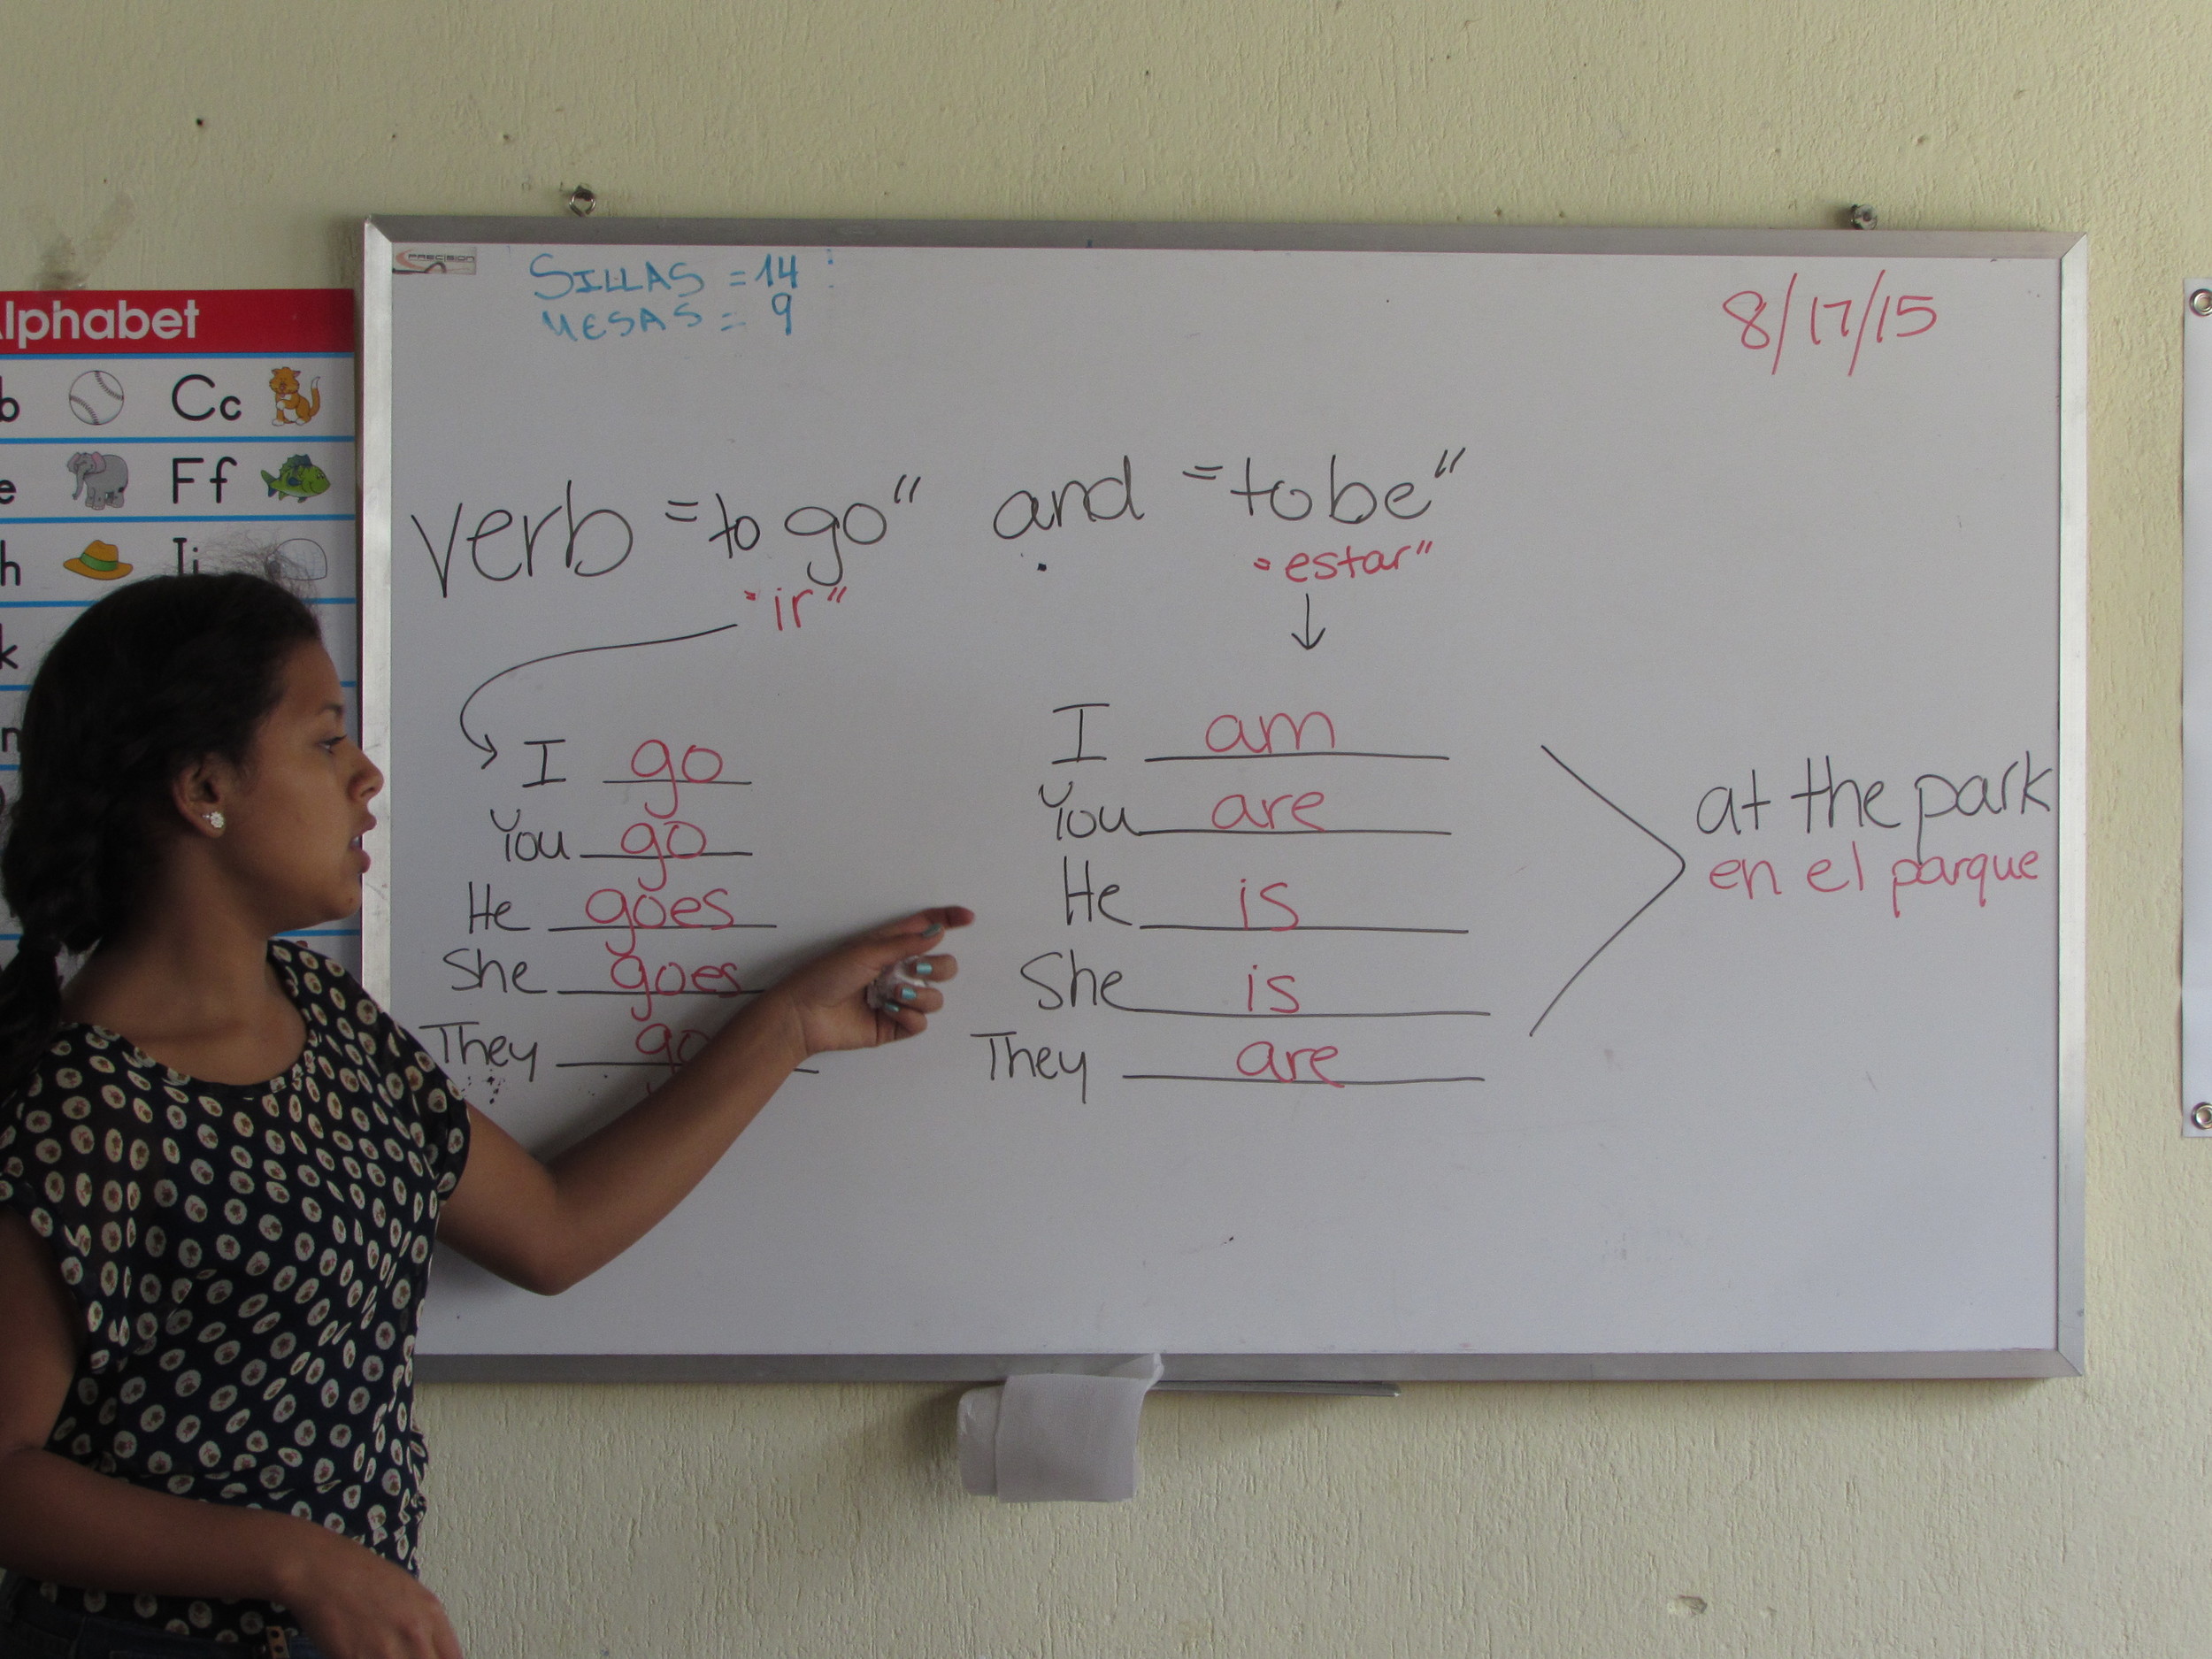 PRECISION
SILLAS = 14
MESAS = 9
8/17/15
Alphabet
b Cc
e Ff
h Ii
k
n
verb "to go" and "to be"
"ir"
"estar"
I go
You go
He goes
She goes
They go
I am
You are
He is
She is
They are
at the park
en el parque